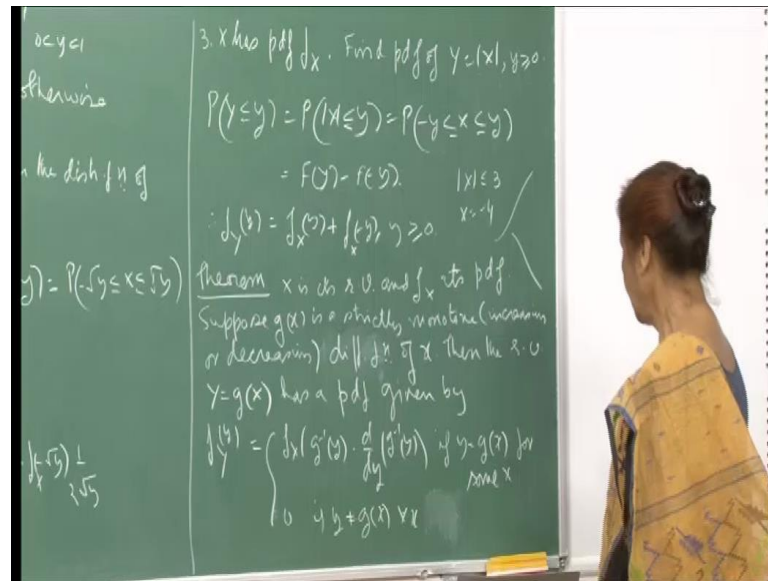 0<y<1
otherwise
the dist. fn. of
y) = P(-√y ≤ x ≤ √y)
f_x(-√y) 1/2√y
3. X has pdf f_x. Find pdf of Y=|X|, y≥0.
P(Y≤y) = P(|X|≤y) = P(-y≤X≤y)
= F(y) - F(-y).
|X| ≤ 3
X=-4
∴ f_Y(y) = f_X(y) + f_X(-y), y ≥ 0.
Theorem X is cts r.v. and f_X its pdf.
Suppose g(x) is a strictly monotone (increasing
or decreasing) diff. fn. of x. Then the r.v.
Y=g(X) has a pdf given by
f_Y(y) = { f_X(g⁻¹(y) · d/dy (g⁻¹(y)) if y=g(x) for
some x
0 if y≠g(x) ∀x